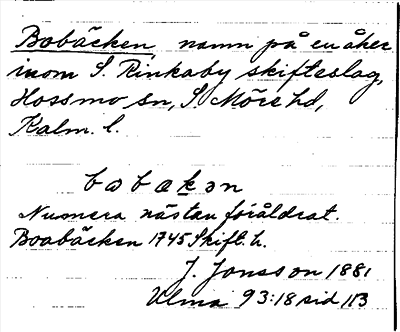 Bobäcken, namn på en åker
inom S. Rinkaby skifteslag,
Hossmo sn, S. Möre hd,
Kalm. l.
bobakən
Numera nästan föråldrat.
Boabäcken 1745 Skift. h.
J. Jonsson 1881
Ulma 93:18 sid 113